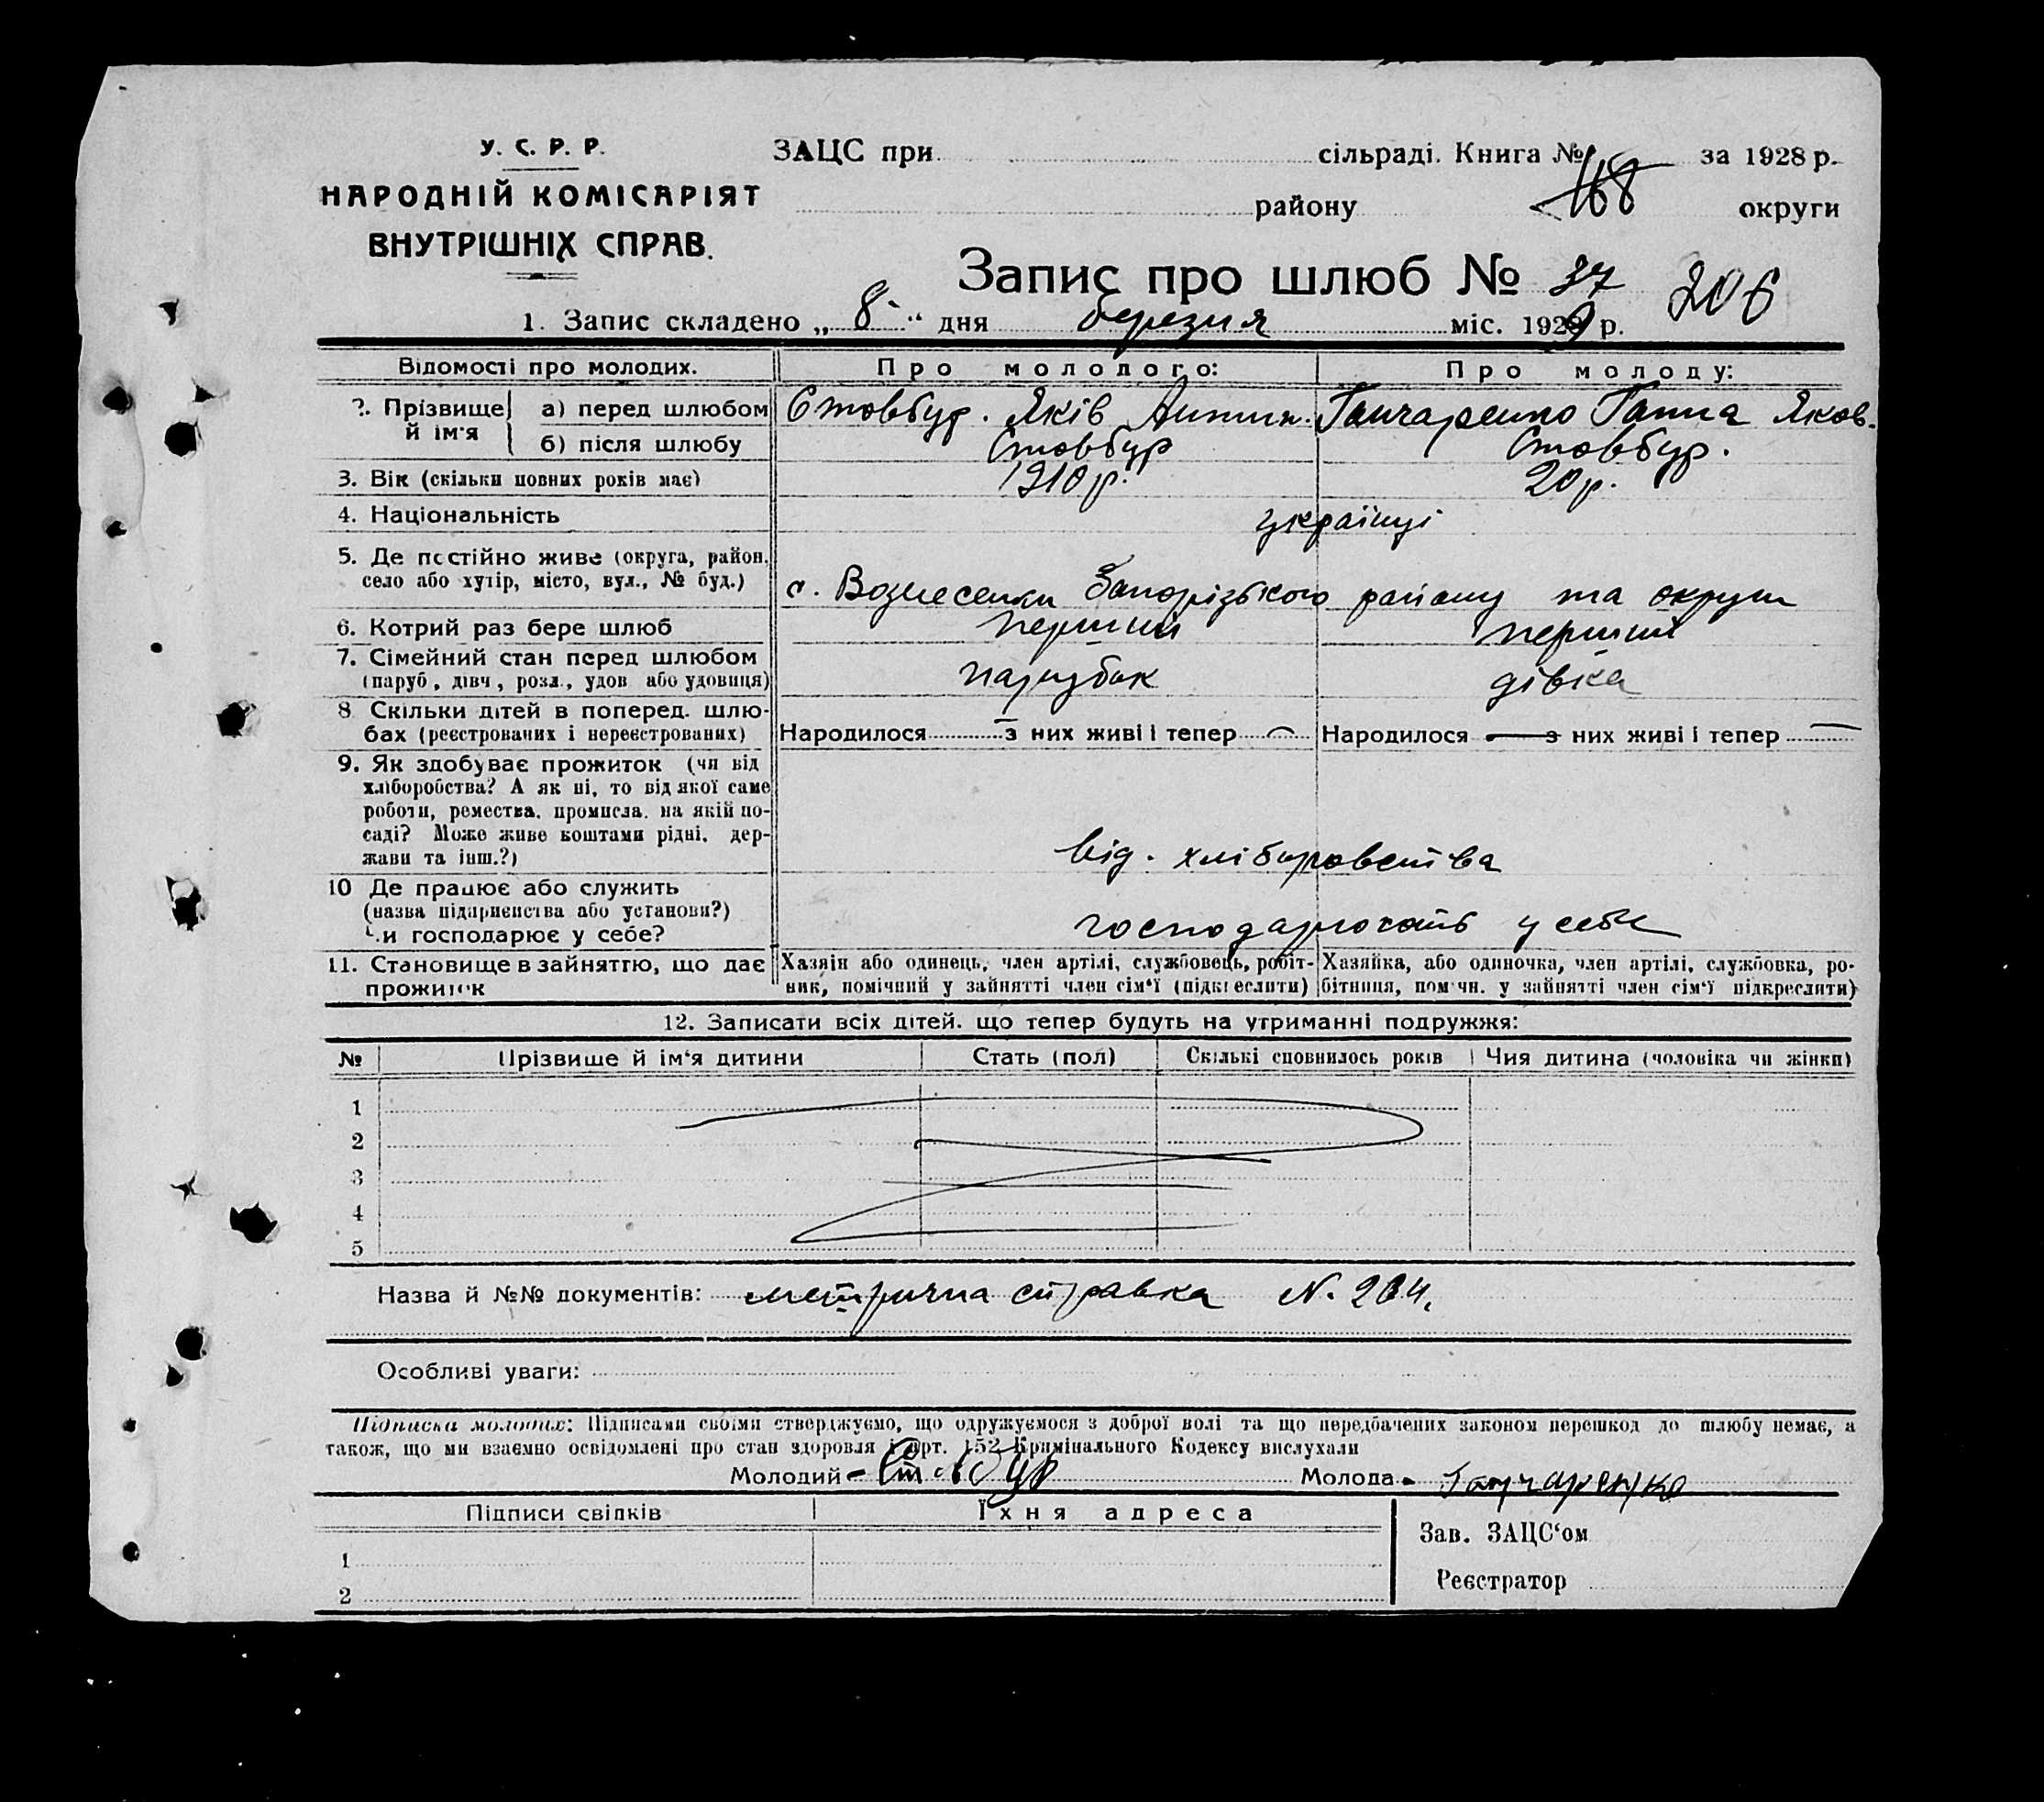 У. С. Р. Р.
НАРОДНІЙ КОМІСАРІЯТ
ВНУТРІШНІХ СПРАВ.
ЗАЦС при сільраді. Книга № за 1928 р.
району 168 округи
Запис про шлюб № 37 206
1. Запис складено „ 8 “ дня березня міс. 1929 р.
Відомості про молодих. Про молодого: Про молоду:
2. Прізвище й ім'я а) перед шлюбом Стовбур. Яків Антин. Ганчаренко Ганна Яков.
б) після шлюбу Стовбур Стовбур.
3. Вік (скільки повних років має) 1910 р. 20 р.
4. Національність українці
5. Де постійно живе (округа, район,
село або хутір, місто, вул., № буд.) с. Вознесенки Запорізького району та округи
6. Котрий раз бере шлюб перший перший
7. Сімейний стан перед шлюбом
(паруб., дівч., розл., удов. або удовиця) парубок дівка
8. Скільки дітей в поперед. шлю-
бах (реєстрованих і нереєстрованих) Народилося з них живі і тепер Народилося з них живі і тепер
9. Як здобуває прожиток (чи від
хліборобства? А як ні, то від якої саме
роботи, ремества, промисла, на якій по-
саді? Може живе коштами рідні, дер-
жави та інш.?) від. хліборобства
10 Де працює або служить
(назва підприємства або установи?)
Чи господарює у себе? господарюють у себе
11. Становище в зайняттю, що дає Хазяїн або одинець, член артілі, службовець, робіт- Хазяйка, або одиночка, член артілі, службовка, ро-
прожиток ник, помічний у зайнятті член сім'ї (підкреслити) бітниця, помічн. у зайнятті член сім'ї підкреслити)
12. Записати всіх дітей, що тепер будуть на утриманні подружжя:
№ Прізвище й ім'я дитини Стать (пол) Скількі сповнилось років Чия дитина (чоловіка чи жінки)
1
2
3
4
5
Назва й №№ документів: метрична справка N. 204.
Особливі уваги:
Підписка молодих: Підписами своїми стверджуємо, що одружуємося з доброї волі та що передбачених законом перешкод до шлюбу немає, а
також, що ми взаємно освідомлені про стан здоровля і арт. 152 Кримінального Кодексу вислухали
Молодий Стовбур Молода Ганчаренко
Підписи свідків Їхня адреса
Зав. ЗАЦС'ом
1
Реєстратор
2